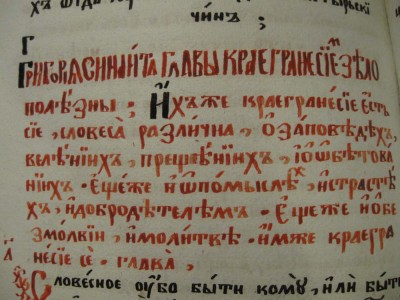 чи́нъ ;
Г
Григорїа синаита главы краегранесїемъ зѣло
поле́зны ; И҆хъже краегране́сїе є҆сть
сїе , словеса̀ разли́чна , ѡ҆ за́повѣдехъ ,
велѣ́нїихъ , преще́нїихъ , и҆ ѡ҆бѣтова́
нїихъ · Є҆ще́же и҆ ѡ҆ по́мыслѣхъ , и҆ страстѣ
хъ , и҆ добродѣ́телехъ · Є҆ще́же и҆ ѡ҆ бе
змо́лвїи , и҆ моли́твѣ · И҆́мже краегра
не́сїе сѐ · глава̀ ,
а҃
Слове́сное ᲂу҆́бо бы́ти кому̀ , и҆лѝ бы́т